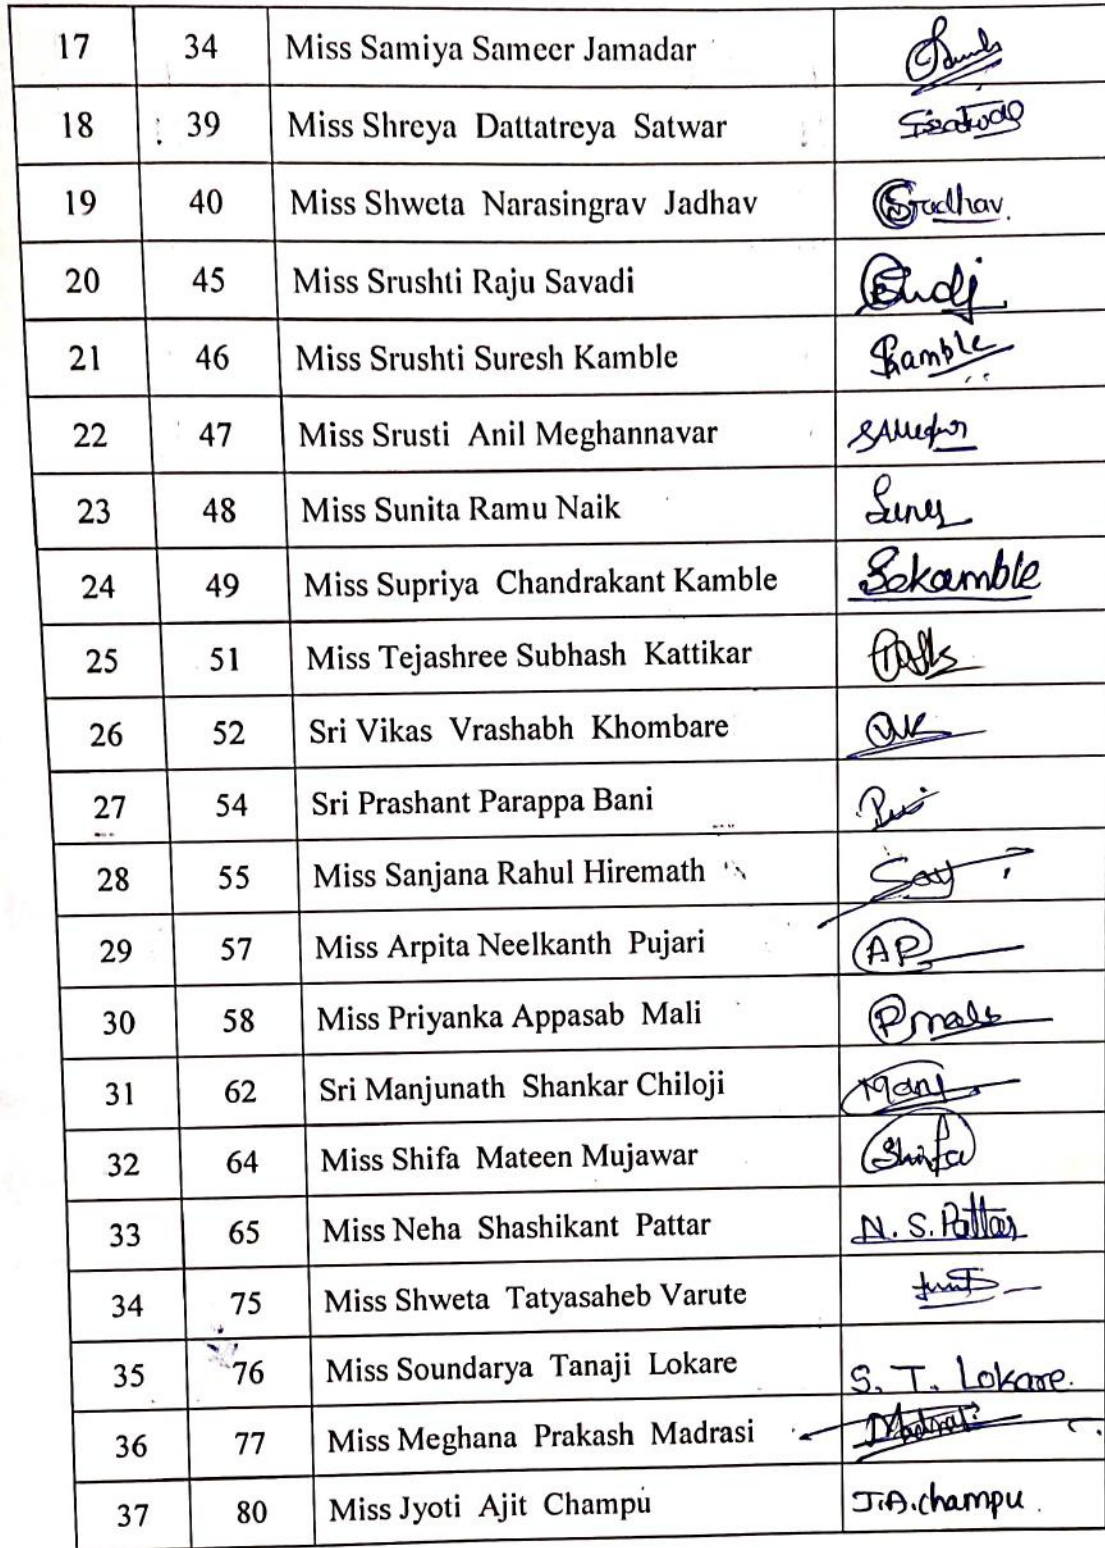 17 34 Miss Samiya Sameer Jamadar
18 39 Miss Shreya Dattatreya Satwar
19 40 Miss Shweta Narasingrav Jadhav
20 45 Miss Srushti Raju Savadi
21 46 Miss Srushti Suresh Kamble Kamble
22 47 Miss Srusti Anil Meghannavar
23 48 Miss Sunita Ramu Naik
24 49 Miss Supriya Chandrakant Kamble Sckamble
25 51 Miss Tejashree Subhash Kattikar
26 52 Sri Vikas Vrashabh Khombare
27 54 Sri Prashant Parappa Bani
28 55 Miss Sanjana Rahul Hiremath
29 57 Miss Arpita Neelkanth Pujari AP
30 58 Miss Priyanka Appasab Mali
31 62 Sri Manjunath Shankar Chiloji Manj
32 64 Miss Shifa Mateen Mujawar Shifa
33 65 Miss Neha Shashikant Pattar N. S. Pattar
34 75 Miss Shweta Tatyasaheb Varute
35 76 Miss Soundarya Tanaji Lokare S. T. Lokare.
36 77 Miss Meghana Prakash Madrasi
37 80 Miss Jyoti Ajit Champu J.A.champu.